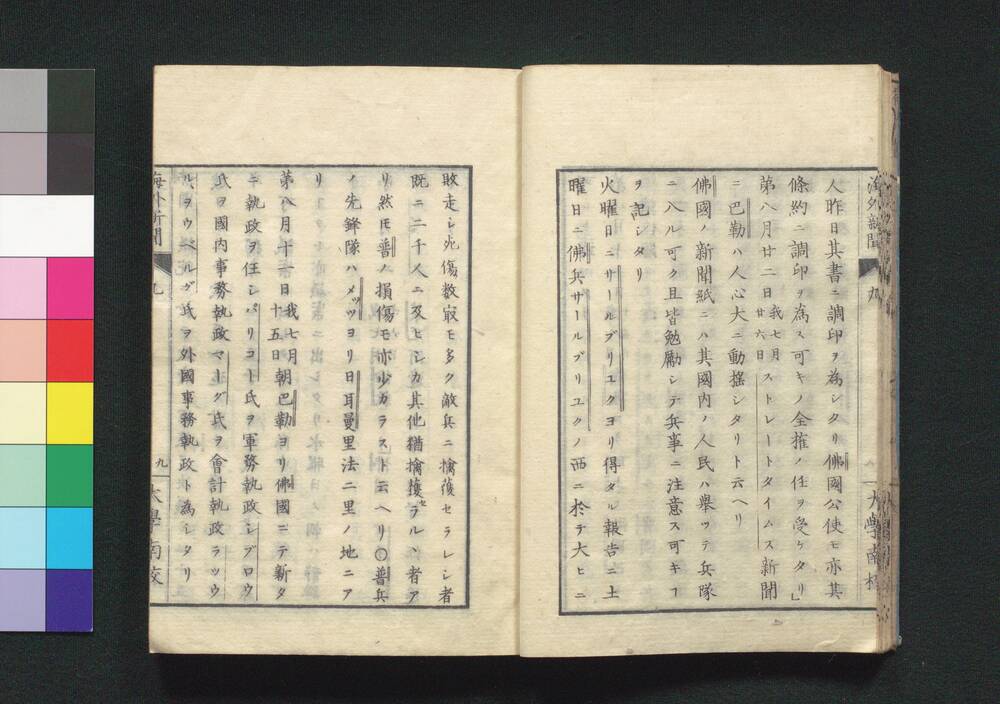 人昨日其書ニ調印ヲ為シタリ佛國公使モ亦其
條約ニ調印ヲ為ス可キノ全推ノ任ヲ受ケタリ」
第八月廿二日我七月廿六日ストレートタイムス新聞
ニ巴勒ハ人心大ニ動揺シタリト云ヘリ
佛國ノ新聞紙ニハ其國内ノ人民ハ舉ッテ兵隊
ニ入ル可ク且皆勉勵シテ兵事ニ注意ス可キヿ
ヲ記シタリ
火曜日ニサールブリユクヨリ得タル報告ニ土
曜日ニ佛兵サールブリユクノ西ニ於テ大ヒニ
海外新聞 九
大學南校
敗走シ死傷数㝡モ多ク敵兵ニ擒獲セラレシ者
既ニ二千人ニ及ヒシカ其他猶擒獲セラルヽ者ア
リ然モ普ノ損傷モ亦少カラスト云ヘリ〇普兵
ノ先鋒隊ハメッツヨリ日耳曼里法二里ノ地ニア
リ
第八月十一日我七月十五日朝巴勒ヨリ佛國ニテ新タ
ニ執政ヲ任シパリコート氏ヲ軍務執政シブロウ
氏ヲ國内事務執政マーグ氏ヲ會計執政ラツウ
ルヲウベルグ氏ヲ外國事務執政ト為シタリ
海外新聞 九
九 大學南校